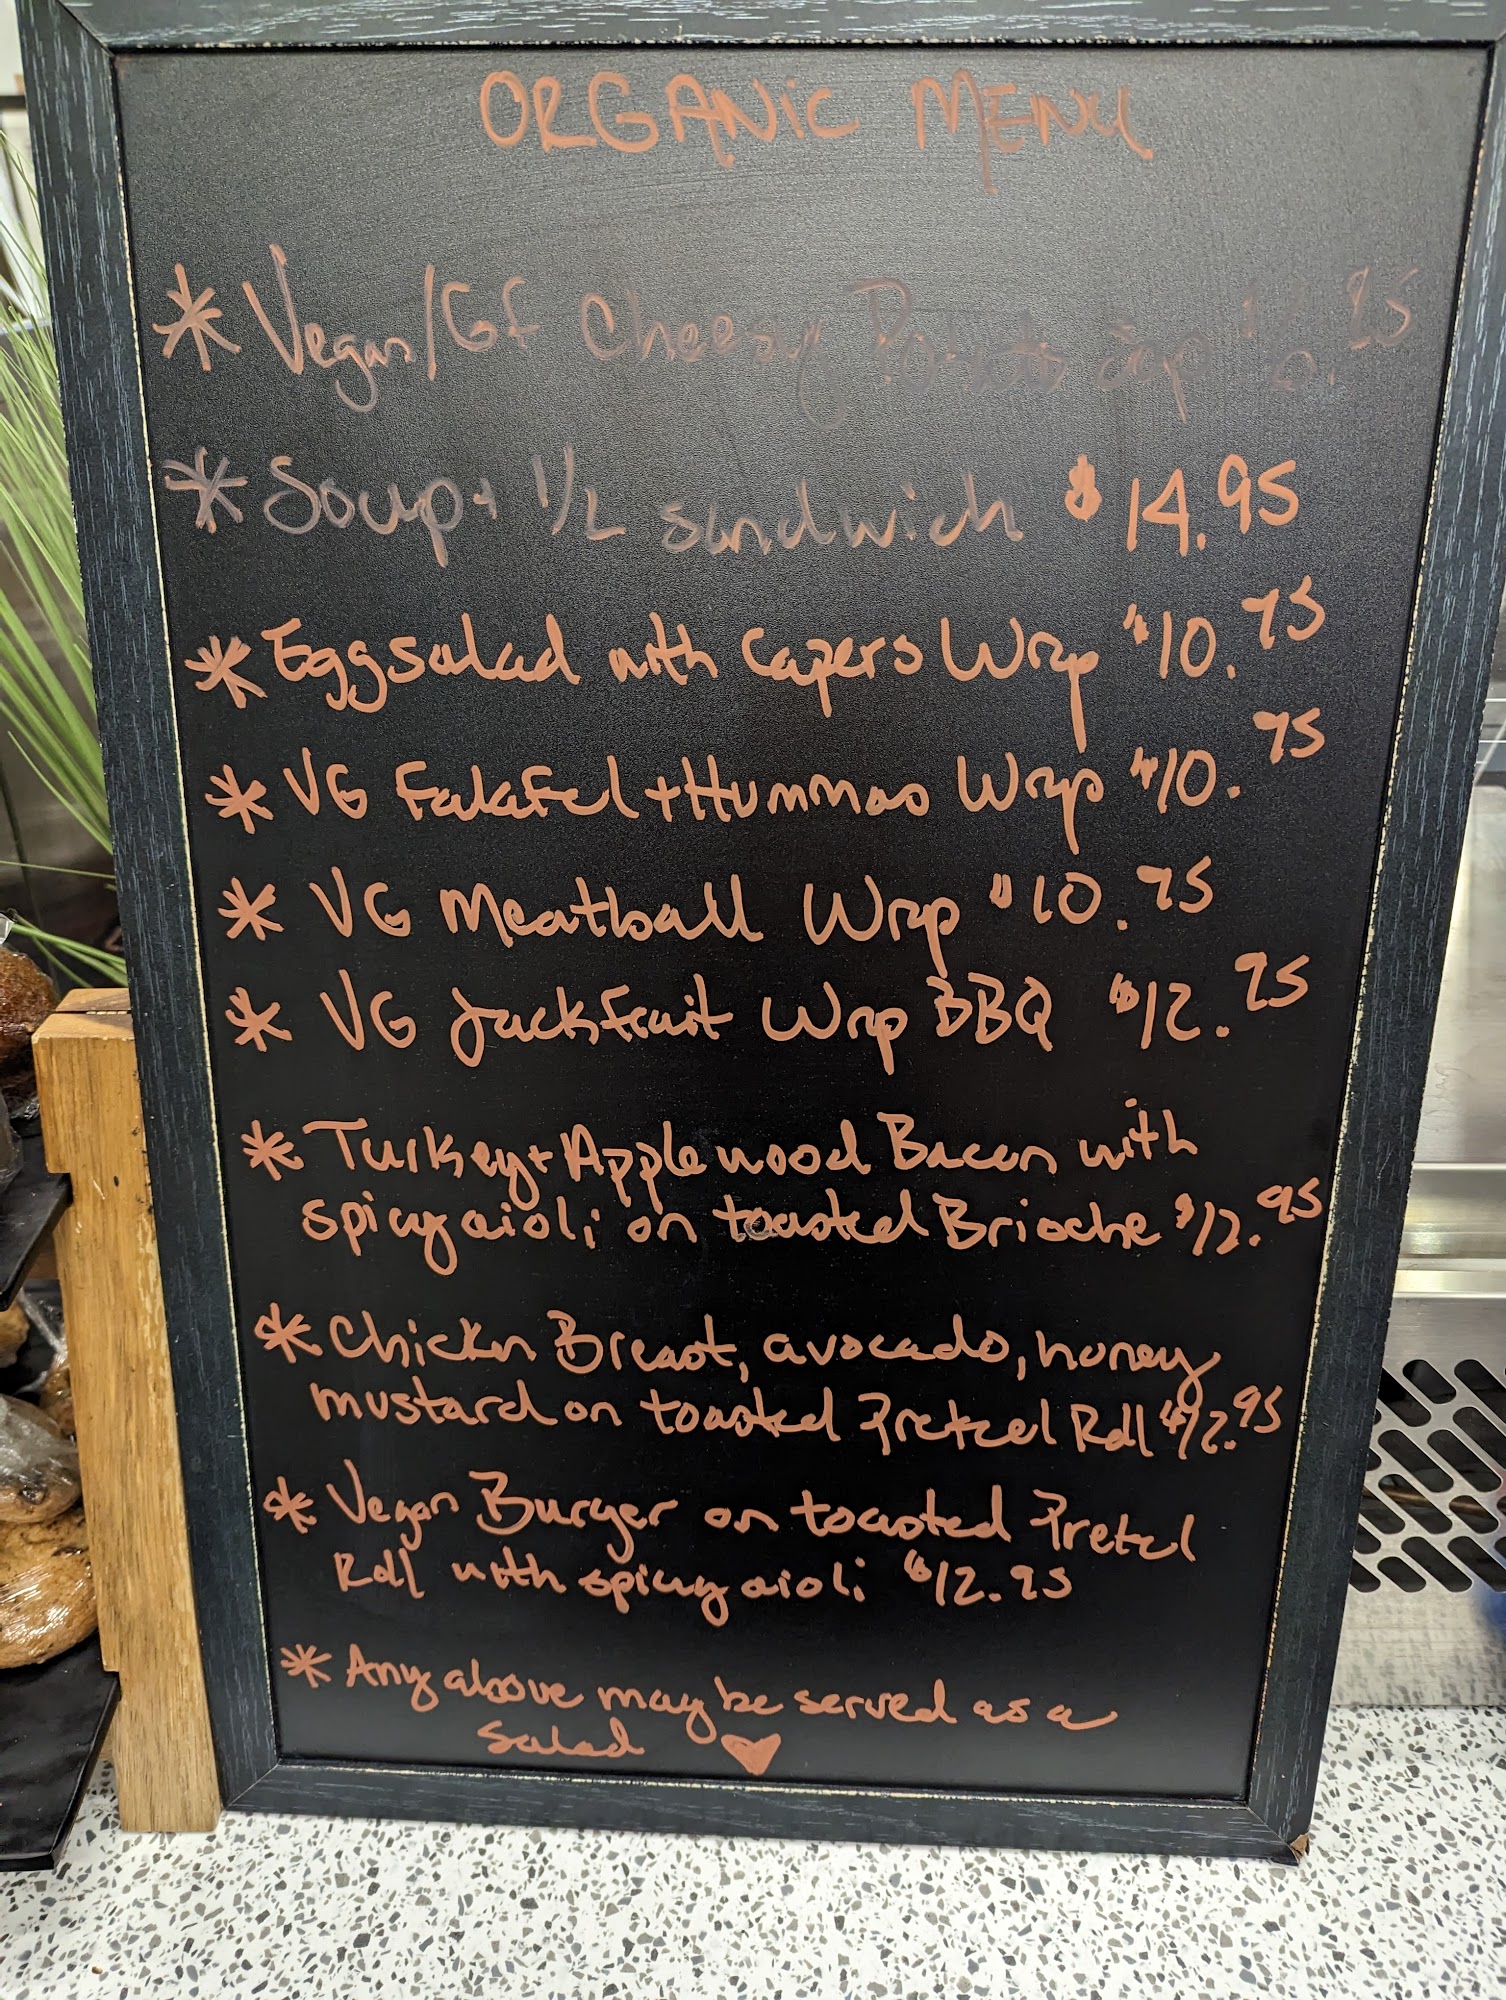 ORGANIC MENU
* Vegan/GF Cheesy Potato Soup
* Soup + 1/2 sandwich $14.95
* Egg salad with capers Wrap $10.95
* VG Falafel + Hummas Wrap $10.95
* VG Meatball Wrap $10.95
* VG Jackfruit Wrap BBQ $12.95
* Turkey + Applewood Bacon with
spicy aioli on toasted Brioche $12.95
* Chicken Breast, avocado, honey
mustard on toasted Pretzel Roll $12.95
* Vegan Burger on toasted Pretzel
Roll with spicy aioli $12.95
* Any above may be served as a
salad ♥